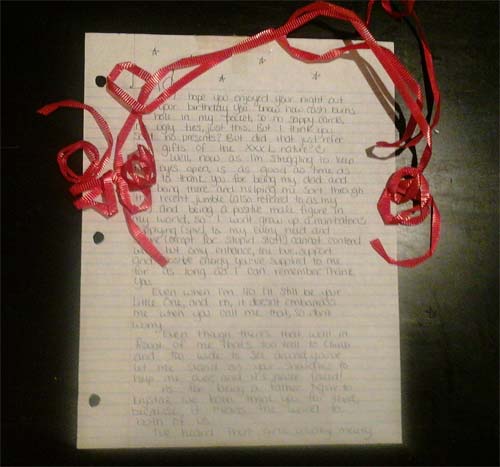 Dad
hope you enjoyed your night out
your birthday. You know how cash burns
hole in my pocket, so no sappy cards,
ugly ties, just this. But I think you
said no presents? But did that just refer
gifts of the XXXL nature?
Well now as I'm struggling to keep
eyes open, is as good as time as
to thank you for being my dad, and
being there and helping me sort through
recent jumble (also referred to as my
and being a positive male figure in
my world, so I will draw up
to my every need and
(except for stupid stuff) cannot contend
but only enhance, the support
and positive energy you've supplied to me
for as long as I can remember. Thank
you.
Even when I'm 40 I'll still be your
Little One, and it doesn't embarrass
me when you call me that, so don't
worry.
Even though there's that wall in
front of me that's too tall to climb
and too wide to see around, you've
let me stand on your shoulders to
help me over, and it's never
for being a father figure to
we both thank you for that,
because it means the world to
both of us.
I've heard that girls usually marry